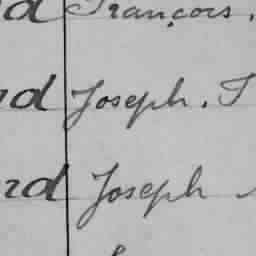 d François.
rd Joseph. T
rd Joseph